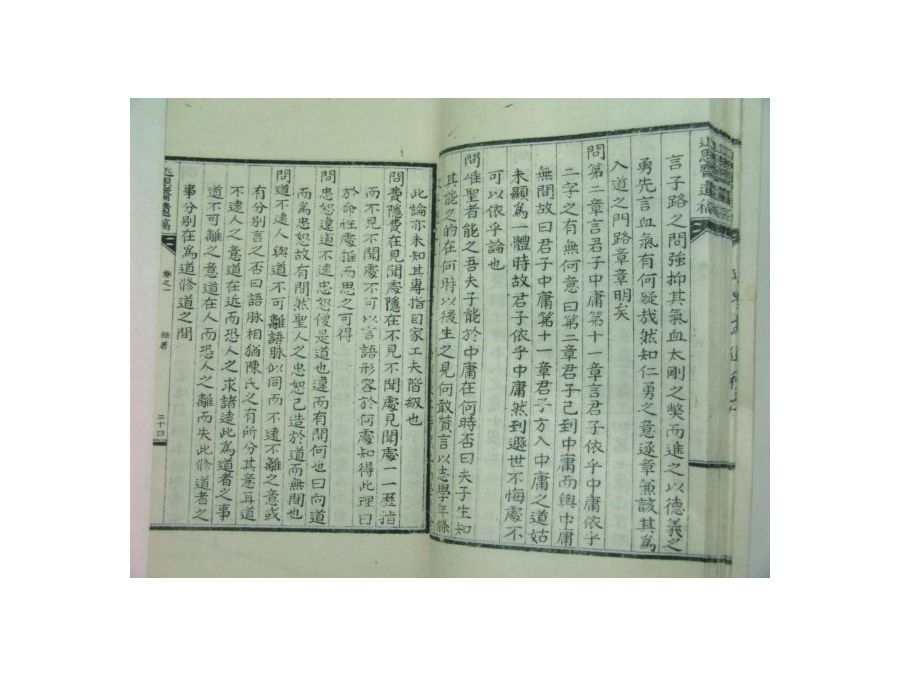 言子路之問強抑其氣血太剛之獘而進之以德義之
勇先言血氣有何疑哉然知仁勇之意逐章兼該其為
入道之門路章章明矣
問第二章言君子中庸第十一章言君子依乎中庸依乎
二字之有無何意曰第二章君子已到中庸而與中庸
無間故曰君子中庸第十一章君子方入中庸之道姑
未顯為一體時故君子依乎中庸然到遯世不悔處不
可以依乎論也
問唯聖者能之吾夫子能於中庸在何時否曰夫子生知
其能之的在何時以後生之見何敢質言以志學年條
此論亦未知其專指自家工夫階級也
問費隱費在見聞處隱在不見不聞處見聞處一一歷指
而不見不聞處不可以言語形容於何處知得此理曰
於命性處推而思之可得
問忠恕違道不遠忠恕便是道也違而有間何也曰向道
而為忠恕故有間然聖人之忠恕已造於道而無間也
問道不遠人與道不可離語脉似同而不遠不離之意或
有分別言之否曰語脉相猶陳氏之有所分其意耳道
不遠人之意道在近而恐人之求諸遠此為道者之事
道不可離之意道在人而恐人之離而失此修道者之
事分別在為道修道之間
思齋遺稿
卷之一
雜著
三十四